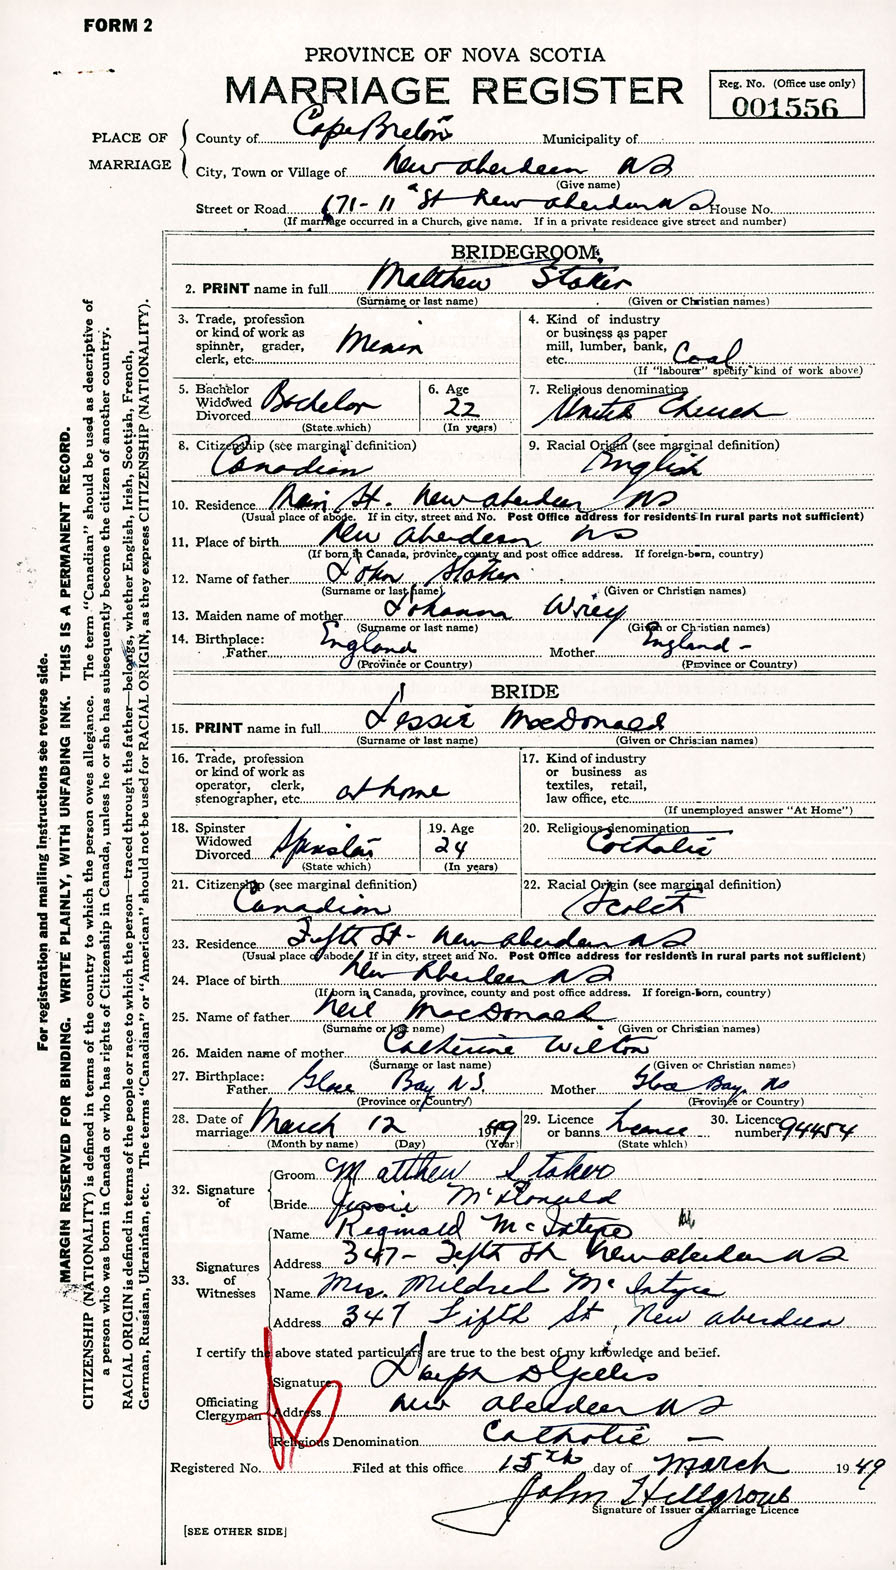 FORM 2
PROVINCE OF NOVA SCOTIA
MARRIAGE REGISTER
Reg. No. (Office use only)
001556
PLACE OF MARRIAGE
County of Cape Breton Municipality of
City, Town or Village of New Aberdeen NS
(Give name)
Street or Road 171-11 St New Aberdeen NS House No.
(If marriage occurred in a Church, give name. If in a private residence give street and number)
BRIDEGROOM
2. PRINT name in full Matthew Stoker
(Surname or last name) (Given or Christian names)
3. Trade, profession or kind of work as spinner, grader, clerk, etc. Minin
4. Kind of industry or business as paper mill, lumber, bank, etc. Coal
(If "labourer" specify kind of work above)
5. Bachelor Widowed Divorced Bachelor
(State which)
6. Age 22
(In years)
7. Religious denomination United Church
8. Citizenship (see marginal definition) Canadian
9. Racial Origin (see marginal definition) English
10. Residence Main St. New Aberdeen NS
(Usual place of abode. If in city, street and No. Post Office address for residents in rural parts not sufficient)
11. Place of birth New Aberdeen NS
(If born in Canada, province, county and post office address. If foreign-born, country)
12. Name of father John Stoker
(Surname or last name) (Given or Christian names)
13. Maiden name of mother Johanna Wriey
(Surname or last name) (Given or Christian names)
14. Birthplace: Father England Mother England -
(Province or Country) (Province or Country)
BRIDE
15. PRINT name in full Jessie MacDonald
(Surname or last name) (Given or Christian names)
16. Trade, profession or kind of work as operator, clerk, stenographer, etc. at home
17. Kind of industry or business as textiles, retail, law office, etc.
(If unemployed answer "At Home")
18. Spinster Widowed Divorced Spinster
(State which)
19. Age 24
(In years)
20. Religious denomination Catholic
21. Citizenship (see marginal definition) Canadian
22. Racial Origin (see marginal definition) Scotch
23. Residence Fifth St - New Aberdeen NS
(Usual place of abode. If in city, street and No. Post Office address for residents in rural parts not sufficient)
24. Place of birth New Aberdeen NS
(If born in Canada, province, county and post office address. If foreign-born, country)
25. Name of father Neil MacDonald
(Surname or last name) (Given or Christian names)
26. Maiden name of mother Catherine Wilton
(Surname or last name) (Given or Christian names)
27. Birthplace: Father Glace Bay N.S. Mother Glace Bay NS
(Province or Country) (Province or Country)
28. Date of marriage March 12 1949
(Month by name) (Day) (Year)
29. Licence or banns Licence
(State which)
30. Licence number 94454
32. Signature of
Groom Matthew Stoker
Bride Jessie McDonald
33. Signatures of Witnesses
Name Reginald McIntyre
Address 347- Fifth St New Aberdeen NS
Name Mrs. Mildred McIntyre
Address 347 Fifth St, New Aberdeen
I certify the above stated particulars are true to the best of my knowledge and belief.
Officiating Clergyman
Signature Joseph D Gillis
Address New Aberdeen NS
Religious Denomination Catholic -
Registered No. Filed at this office 15th day of March 1949
John Hillgrove
Signature of Issuer of Marriage Licence
[SEE OTHER SIDE]
For registration and mailing instructions see reverse side.
MARGIN RESERVED FOR BINDING. WRITE PLAINLY, WITH UNFADING INK. THIS IS A PERMANENT RECORD.
CITIZENSHIP (NATIONALITY) is defined in terms of the country to which the person owes allegiance. The term "Canadian" should be used as descriptive of
a person who was born in Canada or who has rights of Citizenship in Canada, unless he or she has subsequently become the citizen of another country.
RACIAL ORIGIN is defined in terms of the people or race to which the person—traced through the father—belongs, whether English, Irish, Scottish, French,
German, Russian, Ukrainian, etc. The terms "Canadian" or "American" should not be used for RACIAL ORIGIN, as they express CITIZENSHIP (NATIONALITY).